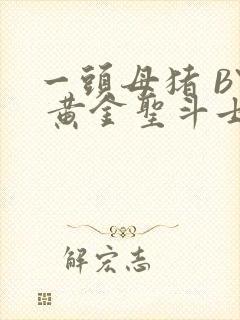 一頭母猪 BY
黄金聖斗士
解宏志